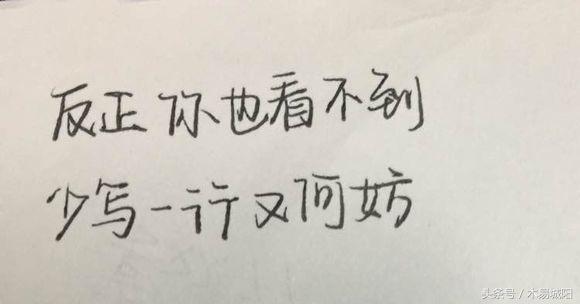 反正你也看不到
少写一行又何妨
头条号 / 木易城阳